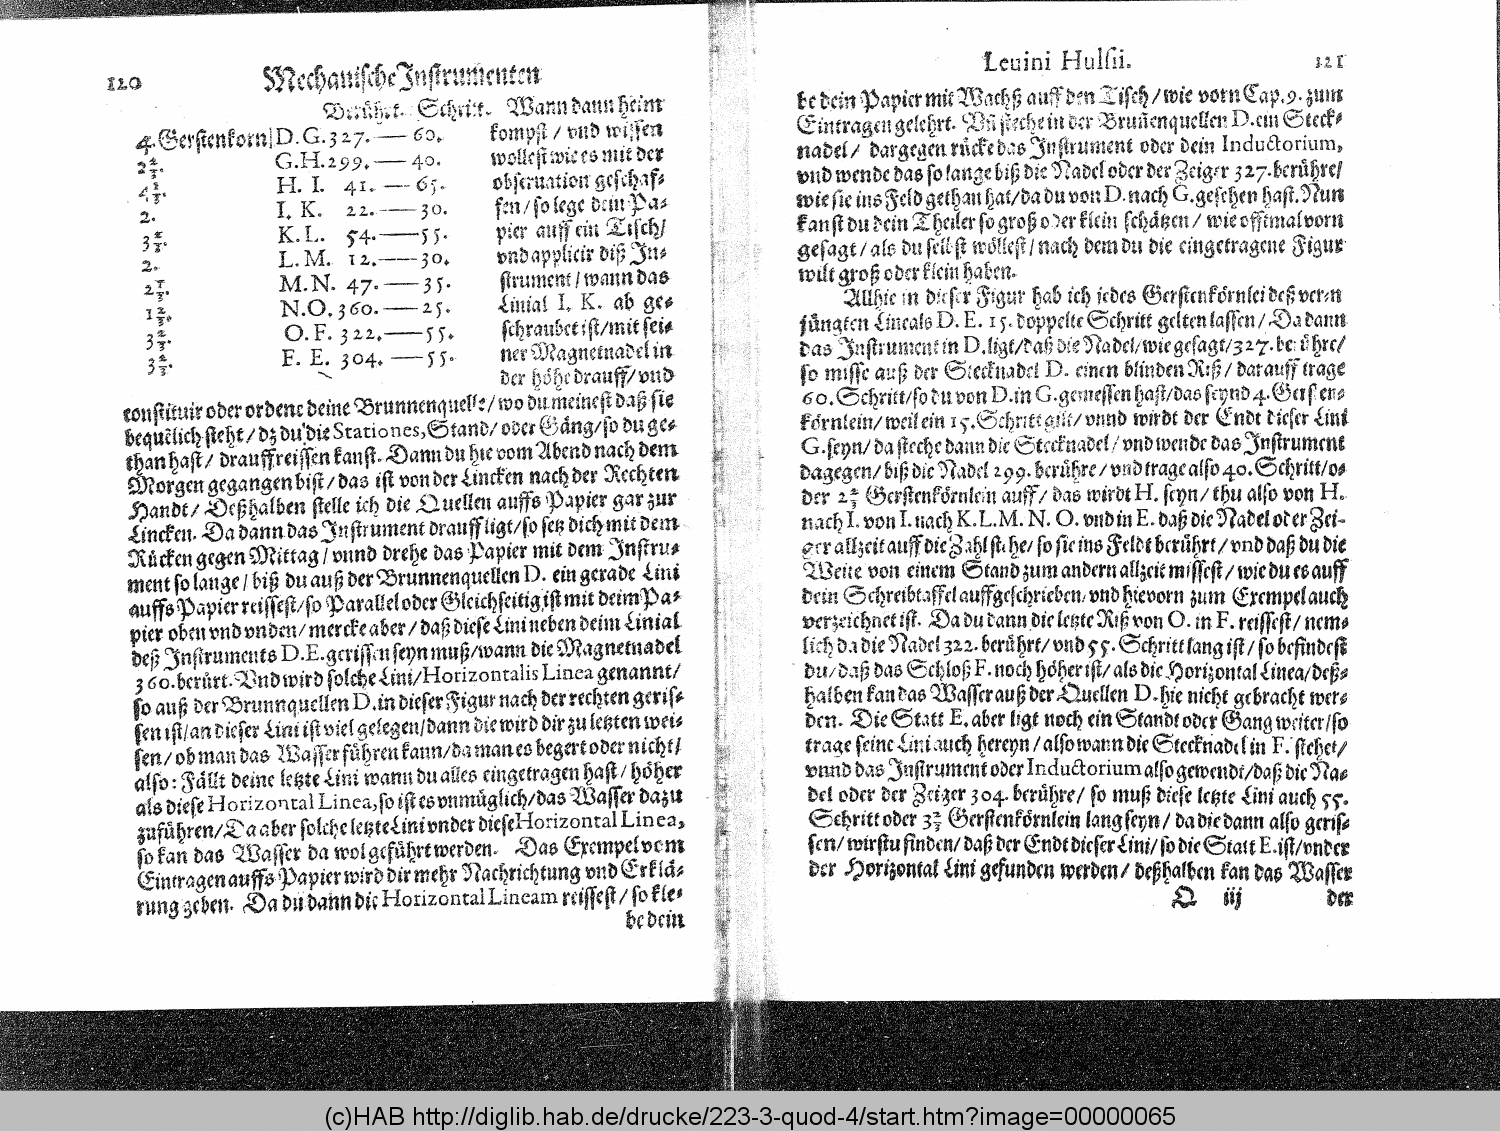 120 Mechanische Instrumenten
Berührt. Schritt. Wann dann heim
4. Gerstenkorn D. G. 327. — 60. kompst / vnd wissen
2 2/3. G. H. 299. — 40. wollest wie es mit der
4 1/3. H. I. 41. — 65. obseruation geschaf-
2. I. K. 22. — 30. fen / so lege dein Pa-
3 2/3. K. L. 54. — 55. pier auff ein Tisch /
2. L. M. 12. — 30. vnd applicir diß In-
2 1/3. M. N. 47. — 35. strument / wann das
1 2/3. N. O. 360. — 25. Linial I. K. ab ge-
3 2/3. O. F. 322. — 55. schraubet ist / mit sei-
3 2/3. F. E. 304. — 55. ner Magnetnadel in
der höhe drauff / vnd
constituir oder ordene deine Brunnenquelle / wo du meinest daß sie
bequēlich steht / dz du die Stationes, Stand / oder Gäng / so du ge-
than hast / drauff reissen kanst. Dann du hie vom Abend nach dem
Morgen gegangen bist / das ist von der Lincken nach der Rechten
Handt / Deßhalben stelle ich die Quellen auffs Papier gar zur
Lincken. Da dann das Instrument drauff ligt / so setz dich mit dem
Rücken gegen Mittag / vnnd drehe das Papier mit dem Instru-
ment so lange / biß du auß der Brunnenquellen D. ein gerade Lini
auffs Papier reissest / so Parallel oder Gleichseitig ist mit deim Pa-
pier oben vnd vnden / mercke aber / daß diese Lini neben deim Linial
deß Instruments D. E. gerissen seyn muß / wann die Magnetnadel
360. berürt. Vnd wird solche Lini / Horizontalis Linea genannt /
so auß der Brunnquellen D. in dieser Figur nach der rechten geris-
sen ist / an dieser Lini ist viel gelegen / dann die wird dir zu letzten wei-
sen / ob man das Wasser führen kann / da man es begert oder nicht /
also: Fällt deine letzte Lini wann du alles eingetragen hast / höher
als diese Horizontal Linea, so ist es vnmüglich / das Wasser dazu
zuführen / Da aber solche letzte Lini vnder diese Horizontal Linea,
so kan das Wasser da wol geführt werden. Das Exempel vom
Eintragen auffs Papier wird dir mehr Nachrichtung vnd Erklä-
rung geben. Da du dann die Horizontal Lineam reissest / so kle-
be dein
Leuini Hulsii. 121
be dein Papier mit Wachß auff den Tisch / wie vorn Cap. 9. zum
Eintragen gelehrt. Vñ steche in der Bruñenquellen D. ein Steck-
nadel / dargegen rücke das Instrument oder dein Inductorium,
vnd wende das so lange biß die Nadel oder der Zeiger 327. berühre /
wie sie ins Feld gethan hat / da du von D. nach G. gesehen hast. Nun
kanst du dein Theiler so groß oder klein schätzen / wie offtmal vorn
gesagt / als du selbst wöllest / nach dem du die eingetragene Figur
wilt groß oder klein haben.
Allhie in dieser Figur hab ich jedes Gerstenkörnlei deß verin
jüngten Lineals D. E. 15. doppelte Schritt gelten lassen / Da dann
das Instrument in D. ligt / daß die Nadel / wie gesagt / 327. berühre /
so misse auß der Stecknadel D. einen blinden Riß / darauff trage
60. Schritt / so du von D. in G. gemessen hast / das seynd 4. Gersten-
körnlein / weil ein 15. Schritt gilt / vnnd wirdt der Endt dieser Lini
G. seyn / da steche dann die Stecknadel / vnd wende das Instrument
dagegen / biß die Nadel 299. berühre / vnd trage also 40. Schritt / o-
der 2 2/3 Gerstenkörnlein auff / das wirdt H. seyn / thu also von H.
nach I. von I. nach K. L. M. N. O. vnd in E. daß die Nadel oder Zei-
ger allzeit auff die Zahl stehe / so sie ins Feldt berührt / vnd daß du die
Weite von einem Stand zum andern allzeit missest / wie du es auff
dein Schreibtaffel auffgeschrieben / vnd hievorn zum Exempel auch
verzeichnet ist. Da du dann die letzte Riß von O. in F. reissest / nem-
lich da die Nadel 322. berührt / vnd 55. Schritt lang ist / so befindest
du / daß das Schloß F. noch höher ist / als die Horizontal Linea / deß-
halben kan das Wasser auß der Quellen D. hie nicht gebracht wer-
den. Die Statt E. aber ligt noch ein Standt oder Gang weiter / so
trage seine Lini auch hereyn / also wann die Stecknadel in F. stehet /
vnnd das Instrument oder Inductorium also gewendt / daß die Na-
del oder der Zeiger 304. berühre / so muß diese letzte Lini auch 55.
Schritt oder 3 2/3 Gerstenkörnlein lang seyn / da die dann also geris-
sen / wirstu finden / daß der Endt dieser Lini / so die Statt E. ist / vnder
der Horizontal Lini gefunden werden / deßhalben kan das Wasser
Q iij der
(c)HAB http://diglib.hab.de/drucke/223-3-quod-4/start.htm?image=00000065